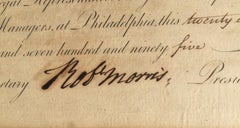 Managers, at Philadelphia, this twenty
and seven hundred and ninety five
Robt Morris, Presi